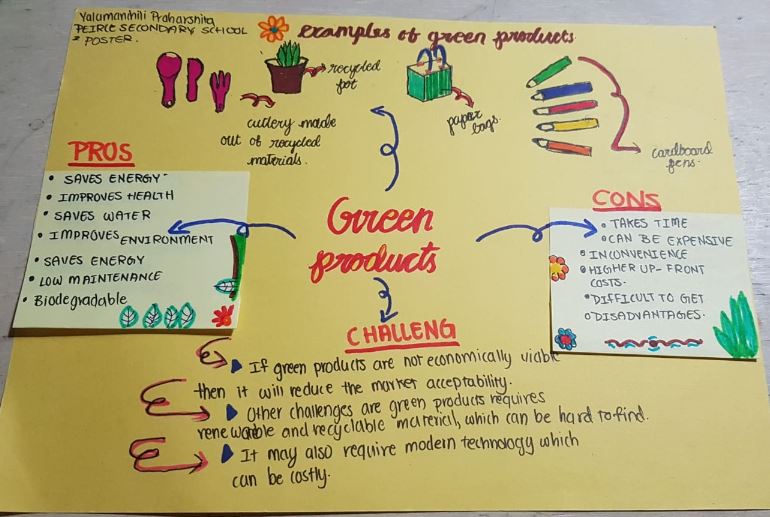 Yalamanhili Praharshita
PEIRCE SECONDARY SCHOOL
POSTER.
examples of green products
recycled
pot
cutlery made
out of recycled
materials.
paper
bags.
cardboard
pens.
PROS
• SAVES ENERGY
• IMPROVES HEALTH
• SAVES WATER
• IMPROVES ENVIRONMENT
• SAVES ENERGY
• LOW MAINTENANCE
• Biodegradable
Green
products
CONS
• TAKES TIME
• CAN BE EXPENSIVE
• INCONVENIENCE
• HIGHER UP-FRONT
COSTS.
• DIFFICULT TO GET
• DISADVANTAGES.
CHALLENG
If green products are not economically viable
then it will reduce the market acceptability.
Other challenges are green products requires
renewable and recyclable material, which can be hard to find.
It may also require modern technology which
can be costly.